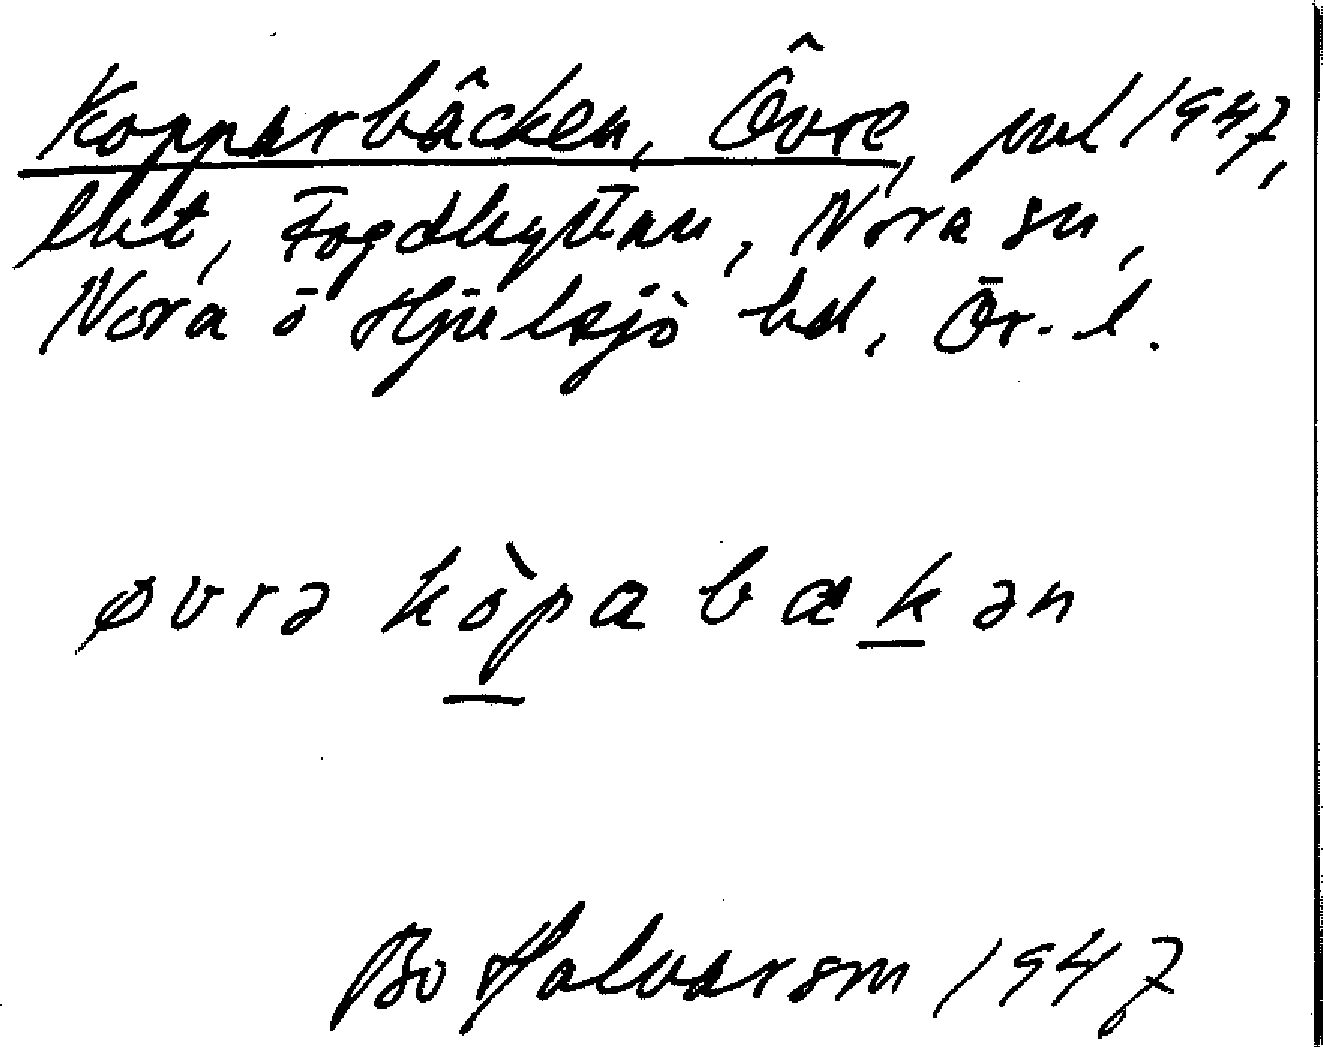 Kopparbäcken, Övre, 1947,
Fogdhyttan, Nora sn,
Nora o Hjulsjö hd, Ör. l.
øvrə kòpabækən
Bo Halvarson 1947